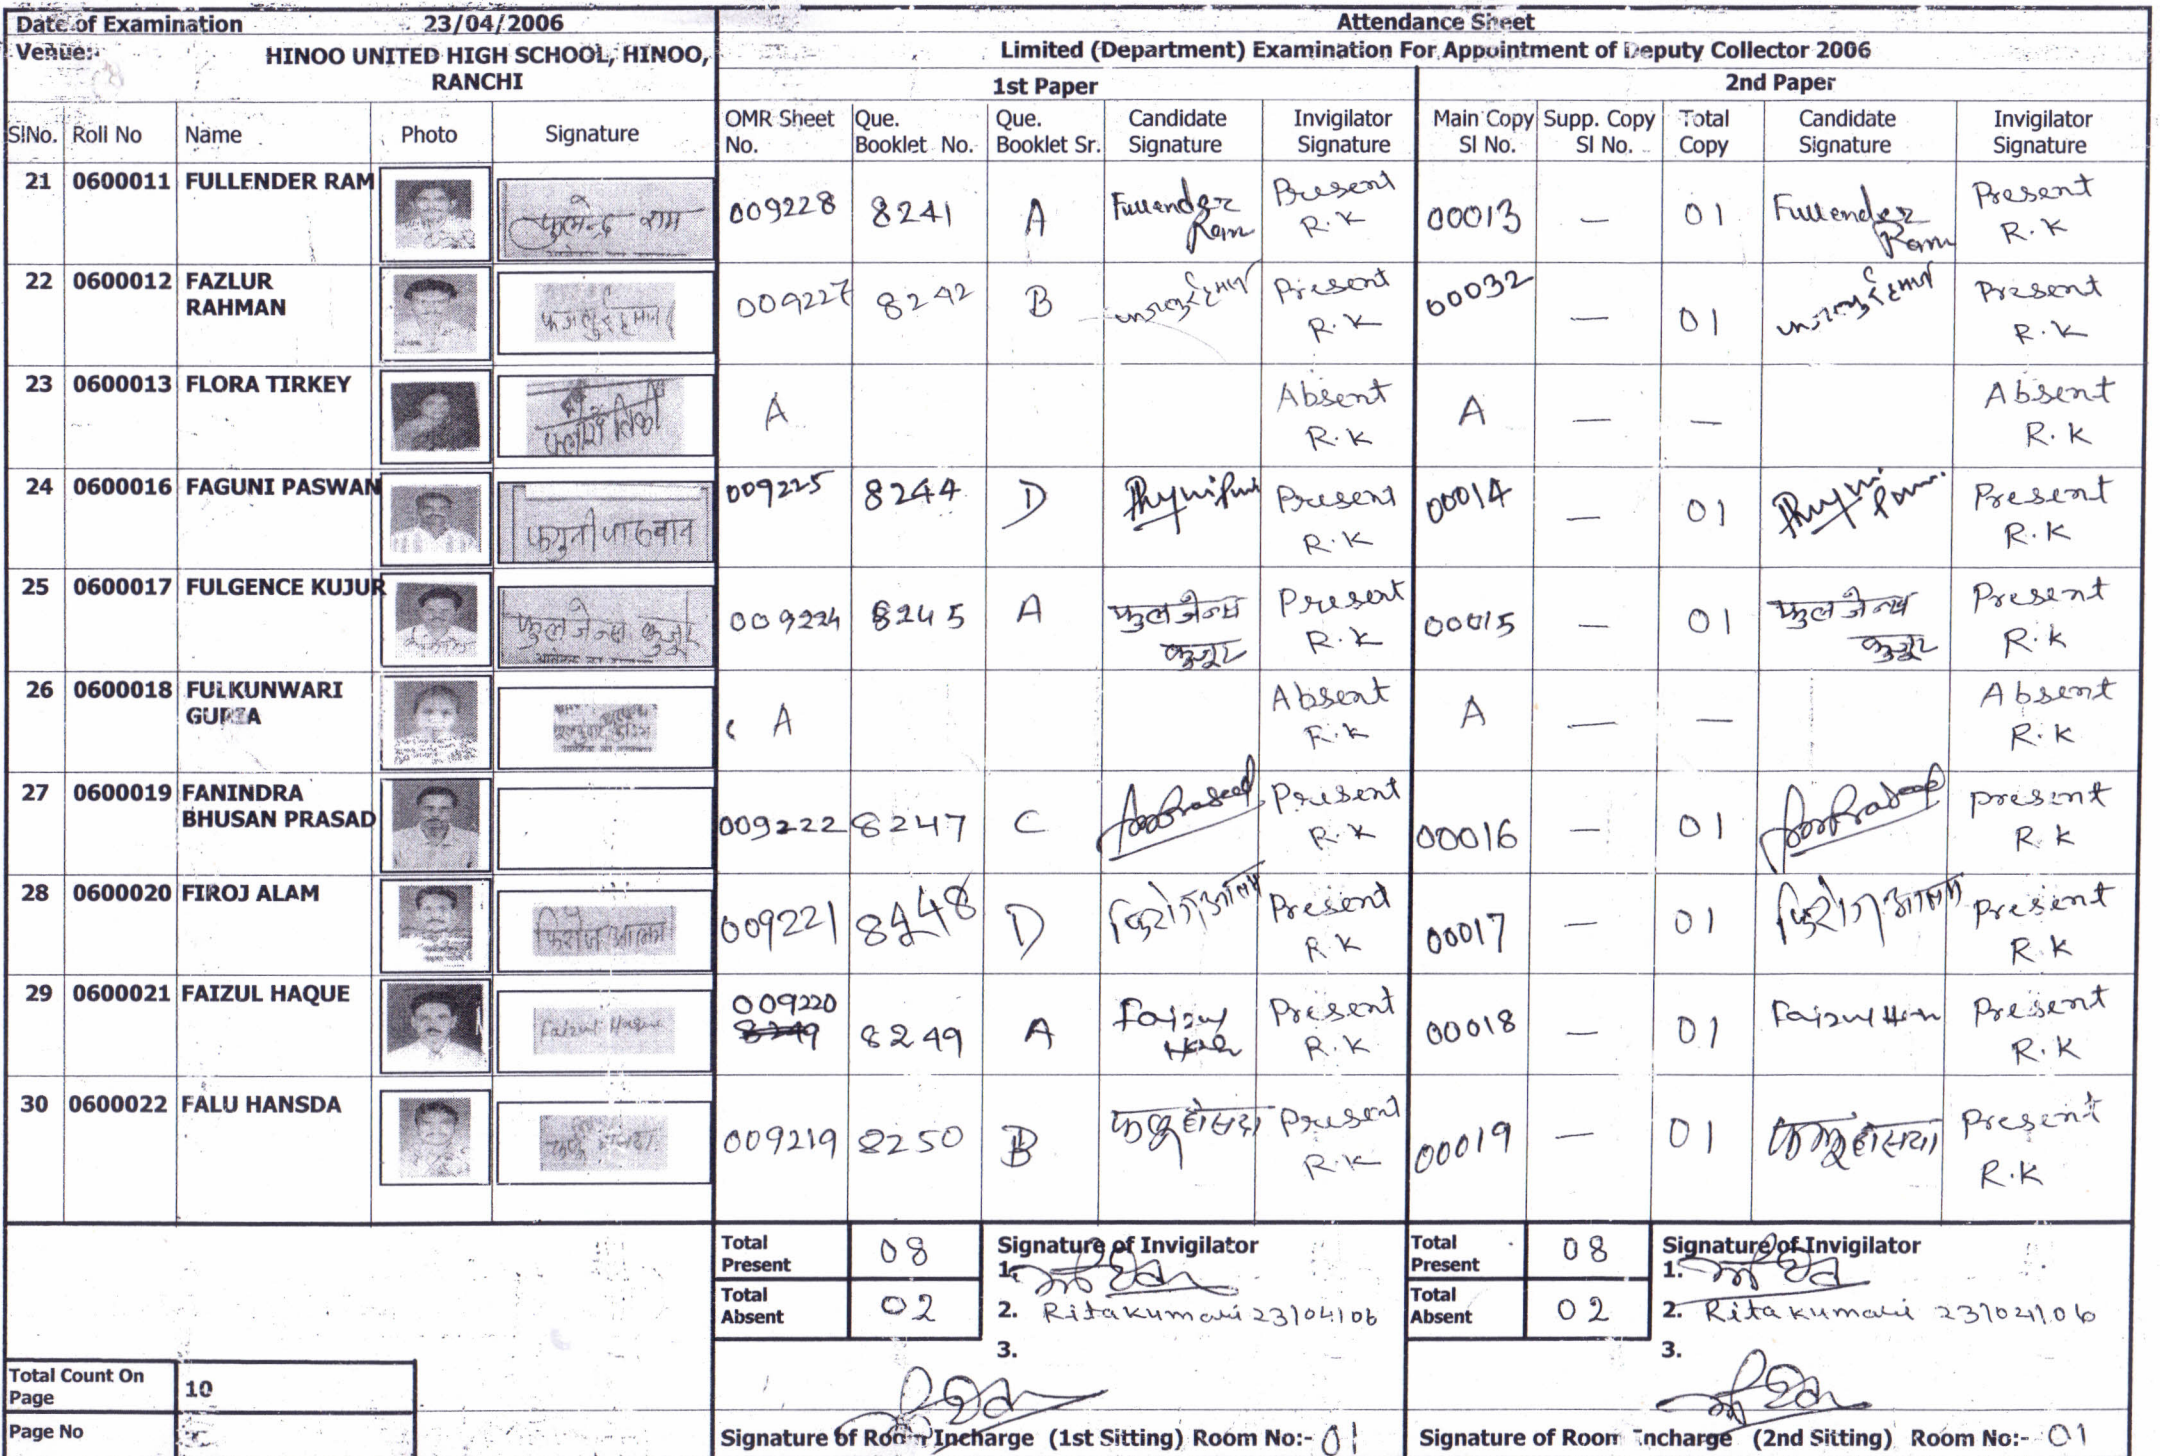 Date of Examination 23/04/2006
Venue:- HINOO UNITED HIGH SCHOOL, HINOO, RANCHI
Attendance Sheet
Limited (Department) Examination For Appointment of Deputy Collector 2006
1st Paper 2nd Paper
SlNo. Roll No Name Photo Signature OMR Sheet No. Que. Booklet No. Que. Booklet Sr. Candidate Signature Invigilator Signature Main Copy Sl No. Supp. Copy Sl No. Total Copy Candidate Signature Invigilator Signature
21 0600011 FULLENDER RAM फुलेन्द्र राम 009228 8241 A Fullender Ram Present R.K 00013 — 01 Fullender Ram Present R.K
22 0600012 FAZLUR RAHMAN 009227 8242 B Present R.K 00032 — 01 Present R.K
23 0600013 FLORA TIRKEY A Absent R.K A — — Absent R.K
24 0600016 FAGUNI PASWAN फगुनी पासवान 009225 8244 D Present R.K 00014 — 01 Present R.K
25 0600017 FULGENCE KUJUR फुलजेन्स कुजूर 009224 8245 A फुलजेन्स कुजूर Present R.K 00015 — 01 फुलजेन्स कुजूर Present R.K
26 0600018 FULKUNWARI GUPTA A Absent R.K A — — Absent R.K
27 0600019 FANINDRA BHUSAN PRASAD 009222 8247 C Present R.K 00016 — 01 Present R.K
28 0600020 FIROJ ALAM फिरोज आलम 009221 8248 D फिरोज आलम Present R.K 00017 — 01 फिरोज आलम Present R.K
29 0600021 FAIZUL HAQUE Faizul Haque 009220 8249 8249 A Faizul Present R.K 00018 — 01 Faizul Present R.K
30 0600022 FALU HANSDA 009219 8250 B फालू हांसदा Present R.K 00019 — 01 फालू हांसदा Present R.K
Total Present 08 Signature of Invigilator Total Present 08 Signature of Invigilator
1. 1.
Total Absent 02 2. Rita kumari 23/04/06 Total Absent 02 2. Rita kumari 23/04/06
3. 3.
Total Count On Page 10
Page No
Signature of Room Incharge (1st Sitting) Room No:- 01 Signature of Room Incharge (2nd Sitting) Room No:- 01